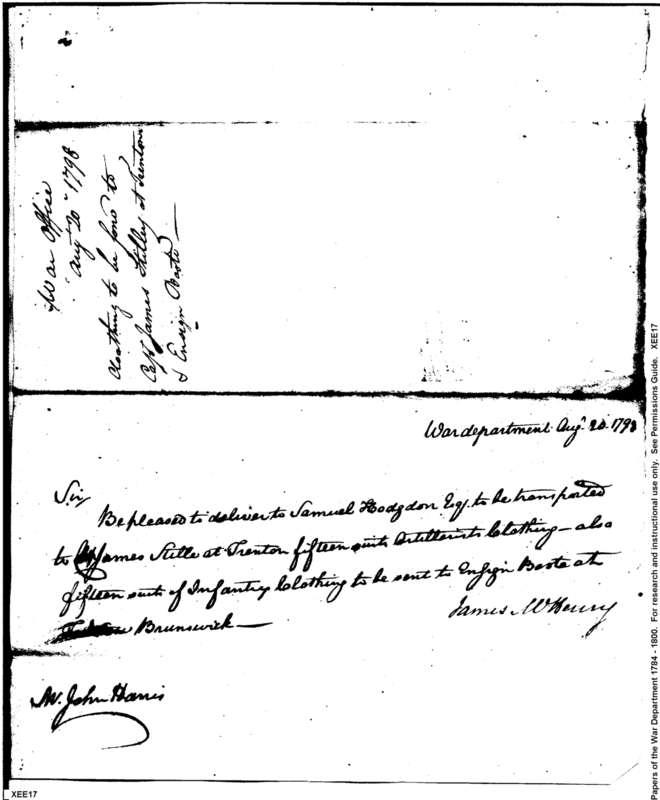 War Office
Augt 20th 1798
Cloathing to be forwd to
Capt James Stilley at Trenton
& Ensign Baste —
War department Augt 20. 1798
Sir
Be pleased to deliver to Samuel Hodgdon Esq. to be transported
to James Stille at Trenton fifteen suits Artillerists Clothing — also
fifteen suits of Infantry Clothing to be sent to Ensign Baste at
Brunswick —
James McHenry
Mr. John Harris
Papers of the War Department 1784 - 1800. For research and instructional use only. See Permissions Guide. XEE17
XEE17